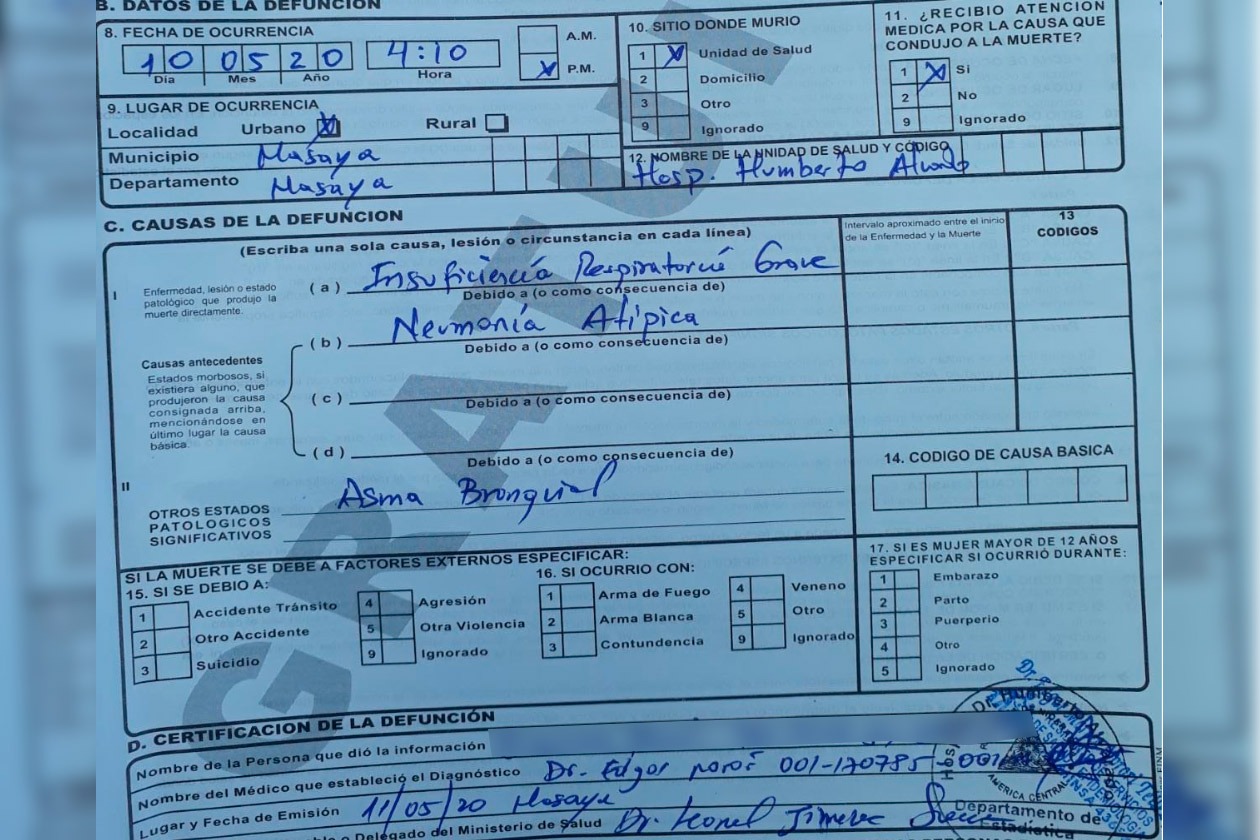 B. DATOS DE LA DEFUNCION
8. FECHA DE OCURRENCIA
10 05 20 4:10
Dia Mes Año Hora
A.M.
X P.M.
9. LUGAR DE OCURRENCIA
Localidad Urbano X Rural
Municipio Masaya
Departamento Masaya
10. SITIO DONDE MURIO
1 X Unidad de Salud
2 Domicilio
3 Otro
9 Ignorado
11. ¿RECIBIO ATENCION
MEDICA POR LA CAUSA QUE
CONDUJO A LA MUERTE?
1 X Si
2 No
9 Ignorado
12. NOMBRE DE LA UNIDAD DE SALUD Y CÓDIGO
Hosp. Humberto
C. CAUSAS DE LA DEFUNCION
(Escriba una sola causa, lesión o circunstancia en cada línea)
Intervalo aproximado entre el inicio
de la Enfermedad y la Muerte
13
CODIGOS
I
Enfermedad, lesión o estado
patológico que produjo la
muerte directamente.
(a) Insuficiencia Respiratoria Grave
Debido a (o como consecuencia de)
(b) Neumonía Atípica
Debido a (o como consecuencia de)
Causas antecedentes
Estados morbosos, si
existiera alguno, que
produjeron la causa
consignada arriba,
mencionándose en
último lugar la causa
básica.
(c)
Debido a (o como consecuencia de)
(d)
Debido a (o como consecuencia de)
II
OTROS ESTADOS
PATOLOGICOS
SIGNIFICATIVOS
Asma Bronquial
14. CODIGO DE CAUSA BASICA
SI LA MUERTE SE DEBE A FACTORES EXTERNOS ESPECIFICAR:
15. SI SE DEBIO A:
1 Accidente Tránsito
2 Otro Accidente
3 Suicidio
4 Agresión
5 Otra Violencia
9 Ignorado
16. SI OCURRIO CON:
1 Arma de Fuego
2 Arma Blanca
3 Contundencia
4 Veneno
5 Otro
9 Ignorado
17. SI ES MUJER MAYOR DE 12 AÑOS
ESPECIFICAR SI OCURRIÓ DURANTE:
1 Embarazo
2 Parto
3 Puerperio
4 Otro
5 Ignorado
GRATUI
D. CERTIFICACION DE LA DEFUNCIÓN
Nombre de la Persona que dió la información
Nombre del Médico que estableció el Diagnóstico Dr. Edgar 001-170785-
Lugar y Fecha de Emisión 11/05/20 Masaya
Delegado del Ministerio de Salud Dr. Leonel
AMERICA CENTRAL
Departamento de
Estadística